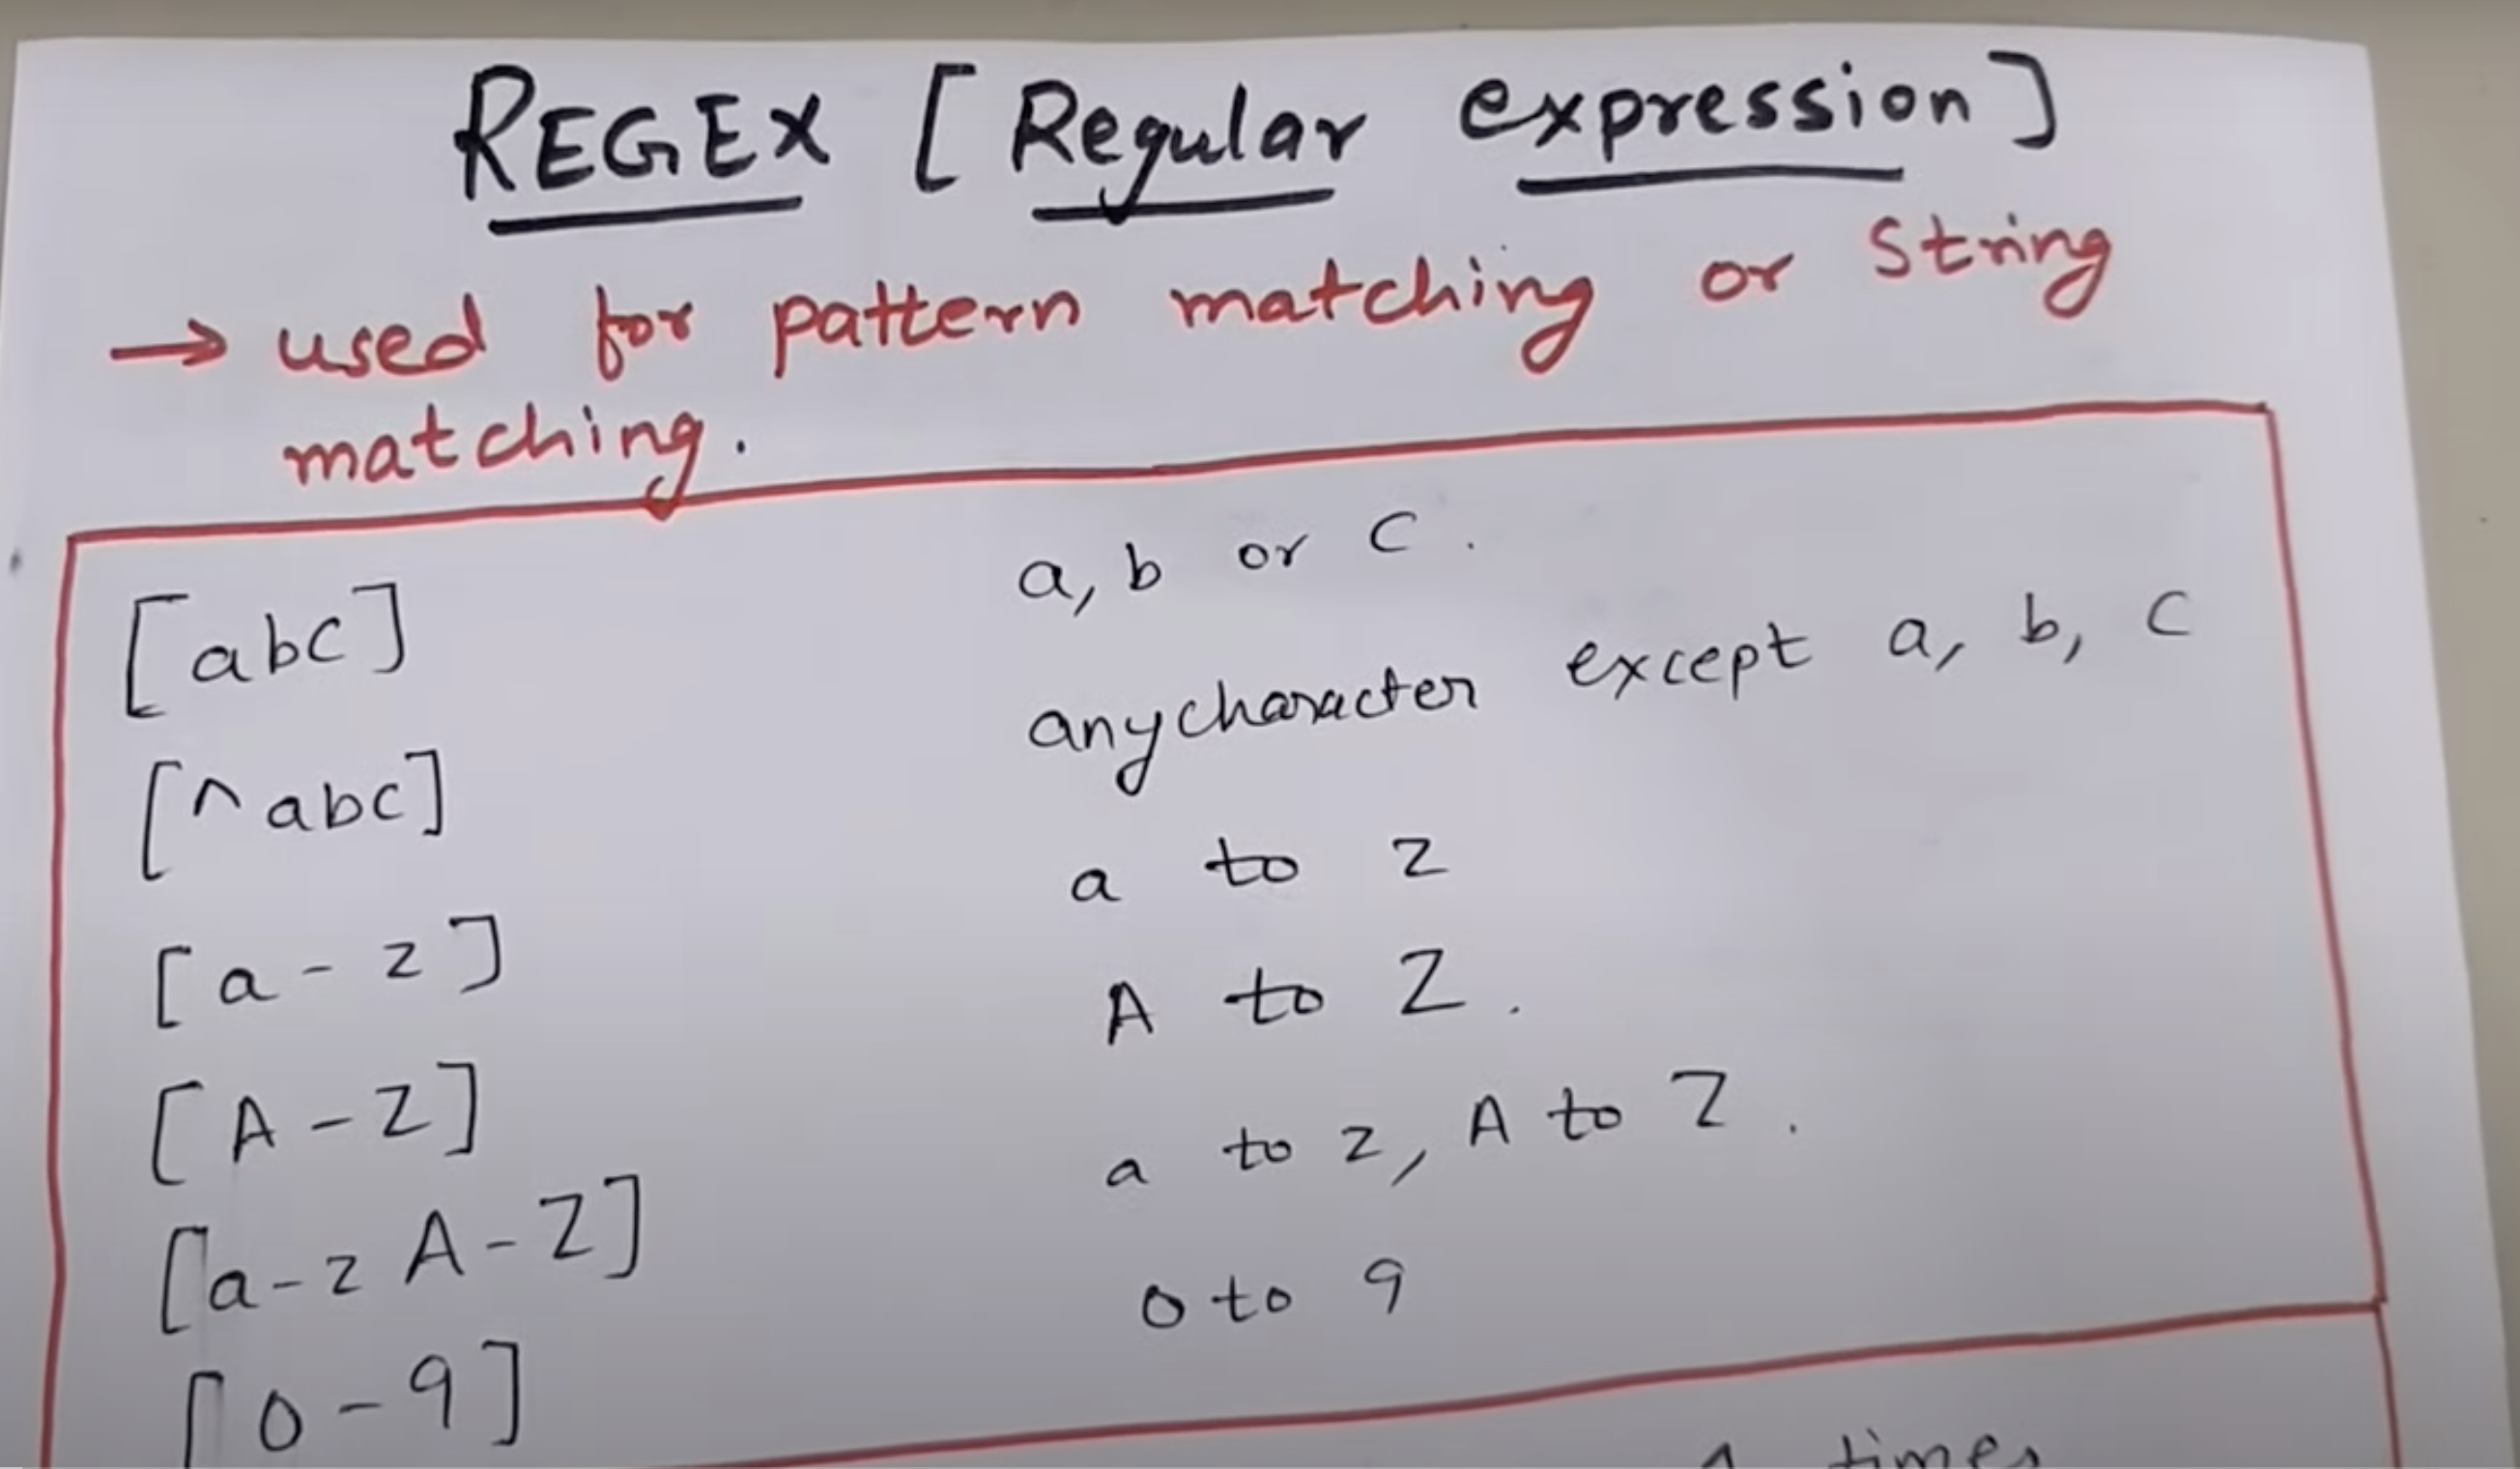 REGEX [Regular expression]
→ used for pattern matching or String
matching.
[abc] a, b or c.
[^abc] any character except a, b, c
[a-z] a to z
[A-Z] A to Z.
[a-z A-Z] a to z, A to Z.
[0-9] 0 to 9
times